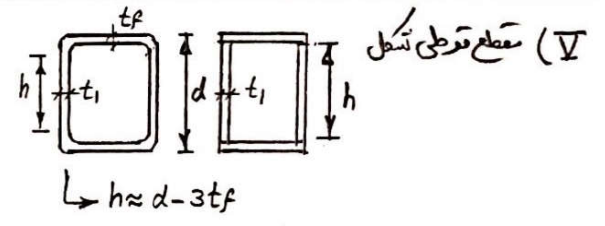 V) مقطع قوطی شکل
tf
h t1 d t1 h
h≈d-3tf